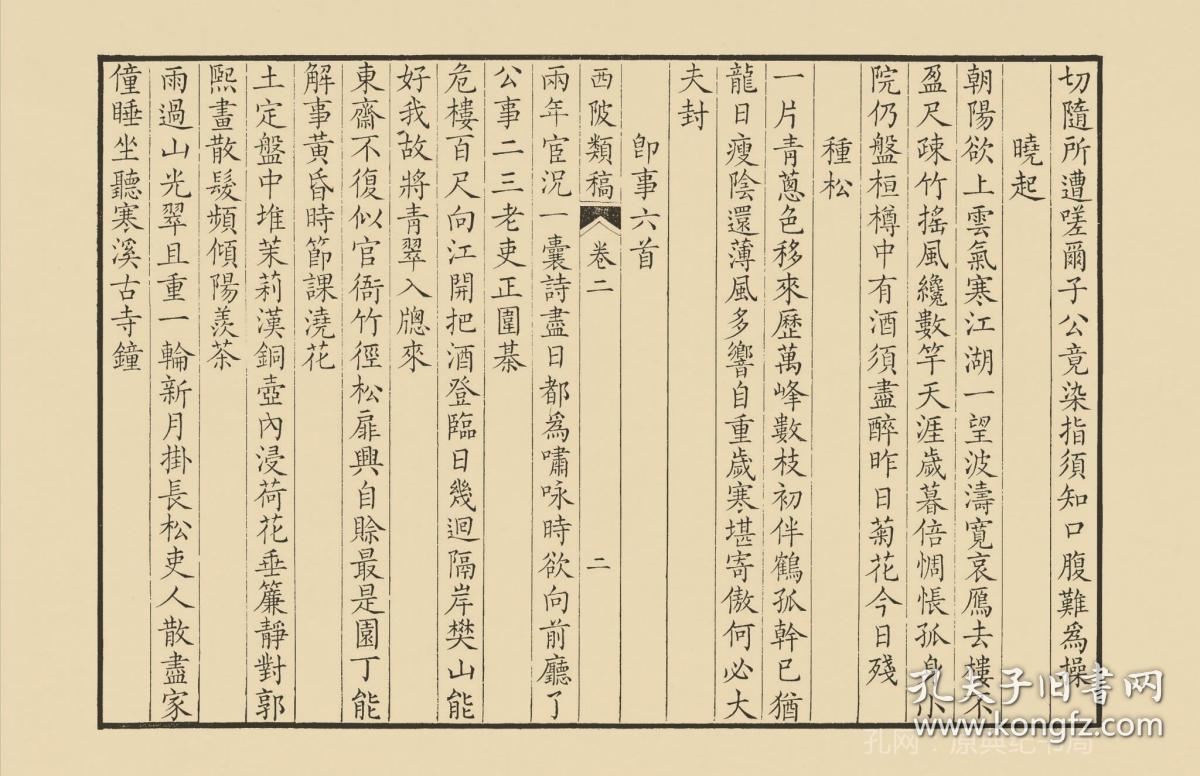 切隨所遭嗟爾子公竟染指須知口腹難爲操
曉起
朝陽欲上雲氣寒江湖一望波濤寬哀鴈去樓不
盈尺疎竹搖風纔數竿天涯歲暮倍惆悵孤
院仍盤桓樽中有酒須盡醉昨日菊花今日殘
種松
一片青蔥色移來歷萬峰數枝初伴鶴孤幹已猶
龍日瘦陰還薄風多響自重歲寒堪寄傲何必大
夫封
卽事六首
西陂類稿 卷二 二
兩年宦況一囊詩盡日都爲嘯咏時欲向前廳了
公事二三老吏正圍棊
危樓百尺向江開把酒登臨日幾迴隔岸樊山能
好我故將青翠入牕來
東齋不復似官衙竹徑松扉興自賒最是園丁能
解事黃昏時節課澆花
土定盤中堆茉莉漢銅壺內浸荷花垂簾靜對郭
熙畫散髮頻傾陽羨茶
雨過山光翠且重一輪新月掛長松吏人散盡家
僮睡坐聽寒溪古寺鐘
孔夫子旧书网
www.kongfz.com
孔网：原典纪书局